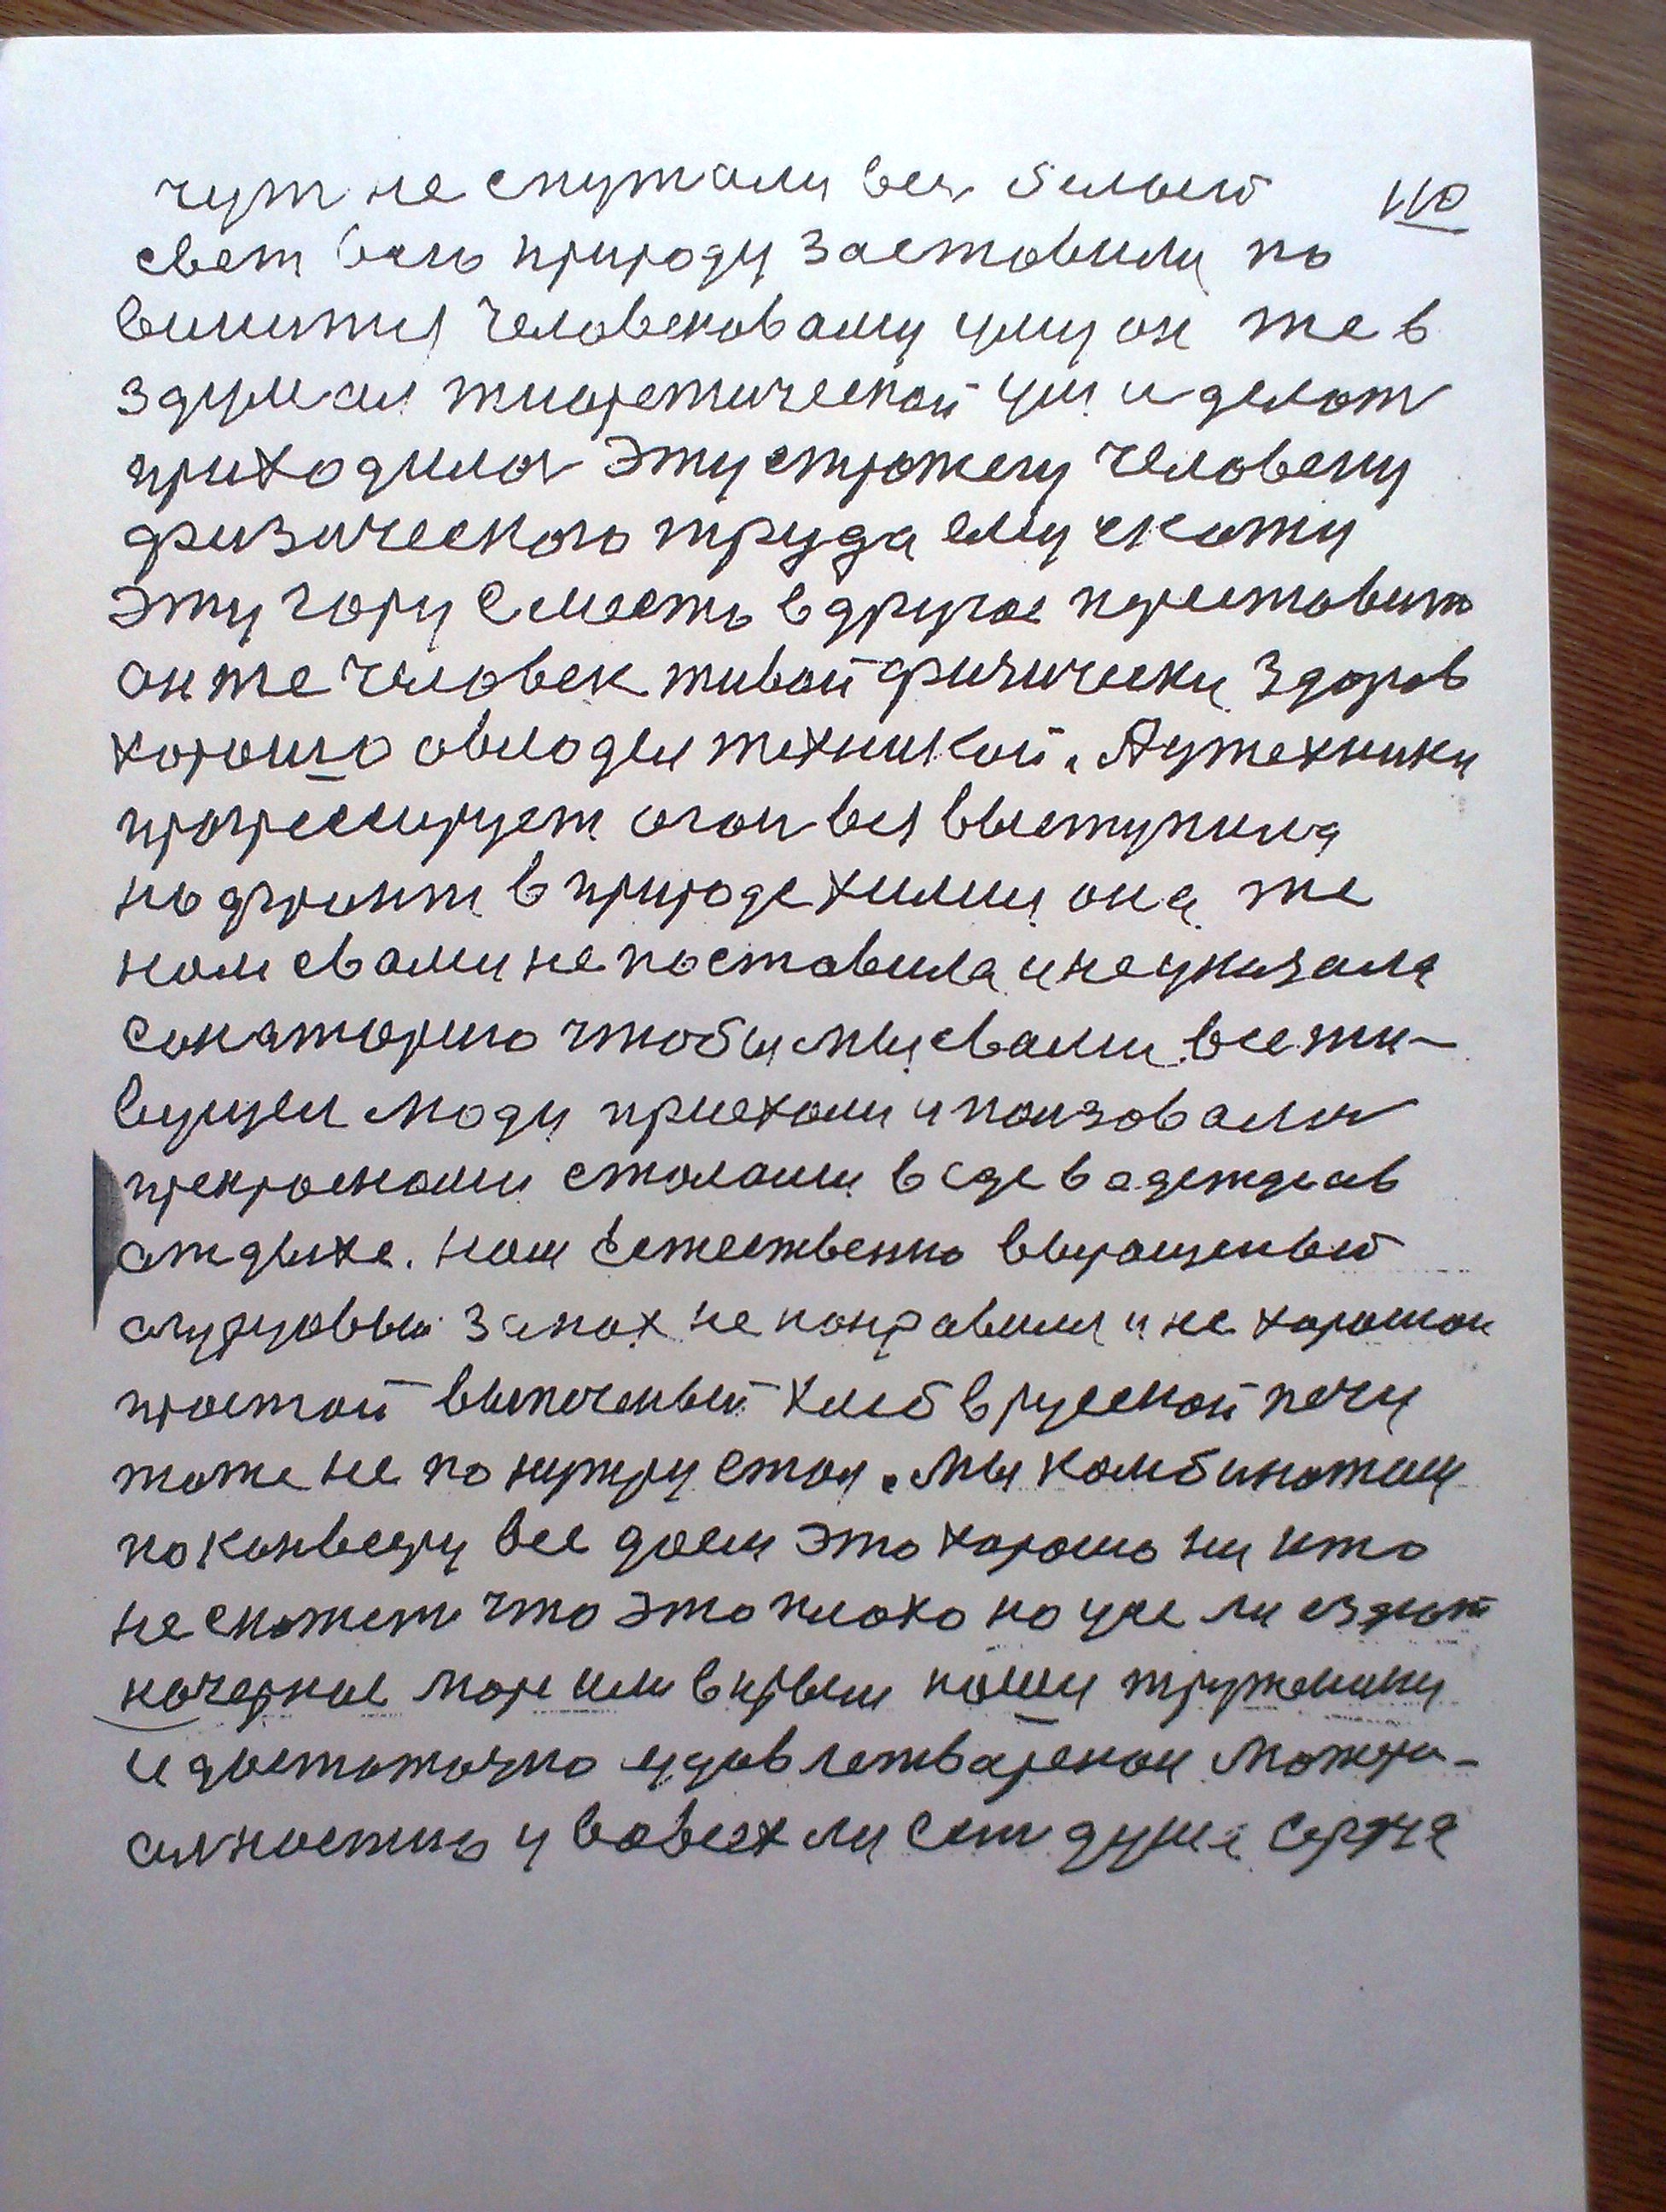 чут не спутали вез белый 110
свет всю природу заставили по
винится человековаму уму он же в
здумал тиоретической ум и делат
приходилос эту стротегу человеку
физического труда ему скоту
эту гору с место в другое преставит
он же человек живой физически здоров
хорошо овлодел техникой. А у техники
прогрессирует огон вся выступила
на фронт в природе химия она же
нам свами не поставила и не указала
санаторию чтобы мы свами все жи-
вущеи люди приехали и ползовалис
прекрасными сталами в еде в адежде в
отдыхе. Нам естественно вырощеный
огурцовый запах не понравился и не хорошои
простой выпоченый хлеб в рускай печи
тоже не по нутру стал. Мы комбинатами
по конвееру все даем это хорошо ни кто
не скажет что это плохо но усе ли ездют
на черное море или в крым наши труженики
и достаточно удовлетваренои матери-
алностию и вовсех ли ест душа сердча